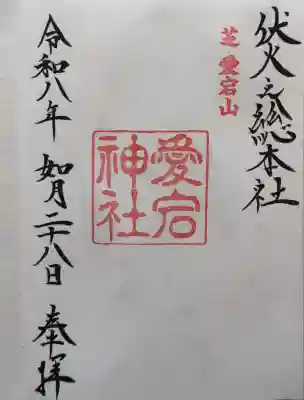 伏火之総本社
芝愛宕山
愛宕神社
令和八年 如月二十八日 奉拝